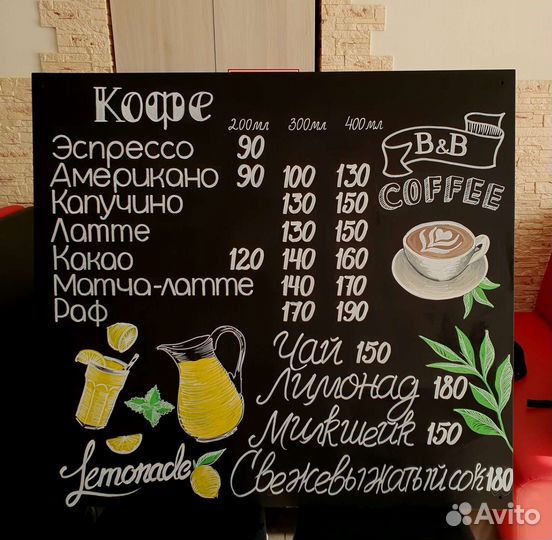 Кофе
200мл 300мл 400мл
Эспрессо 90
Американо 90 100 130
Капучино 130 150
Латте 130 150
Какао 120 140 160
Матча-латте 140 170
Раф 170 190
B&B
COFFEE
Чай 150
Лимонад 180
Милкшейк 150
Свежевыжатый сок 180
Lemonade
Avito